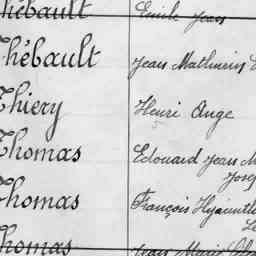 Thébault Emile Jean
Thébault Jean Mathurin
Thiery Henri Ange
Thomas Edouard Jean M
Josep
Thomas François Hyacinthe
Thomas Jean Marie